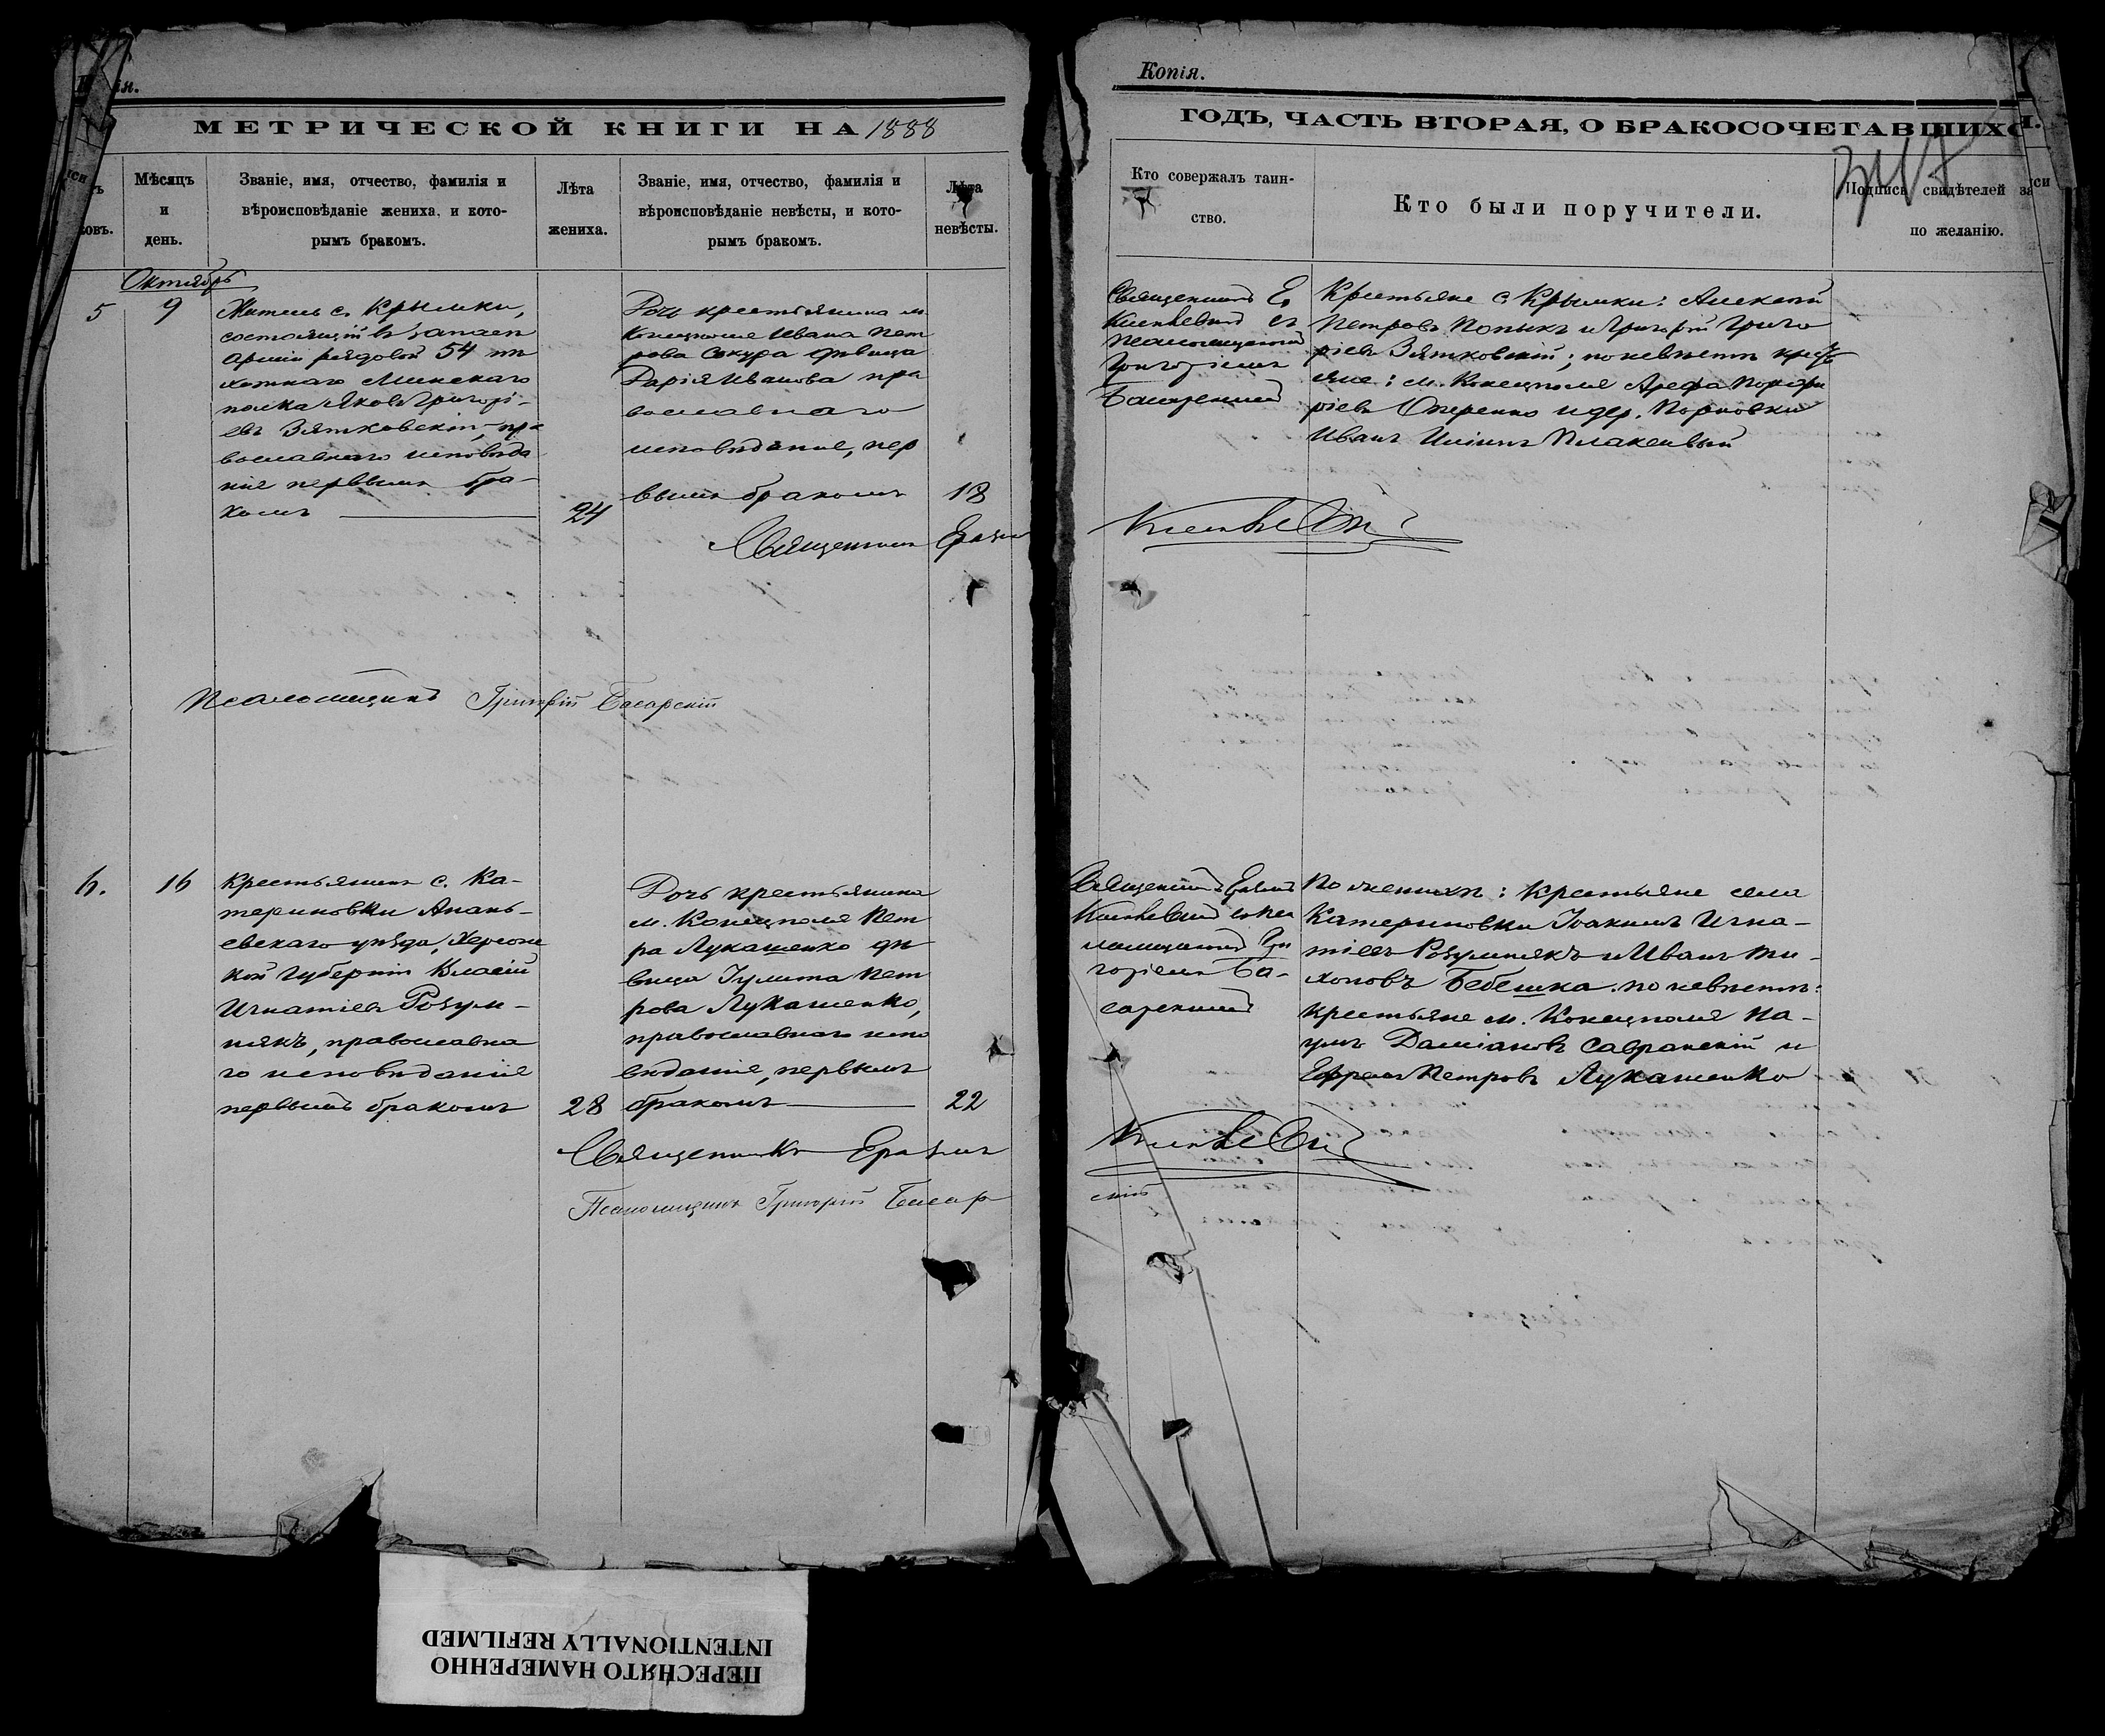 Копія.
МЕТРИЧЕСКОЙ КНИГИ НА 1888
Мѣсяцъ и день.
Званіе, имя, отчество, фамилія и вѣроисповѣданіе жениха, и кото-
рымъ бракомъ.
Лѣта жениха.
Званіе, имя, отчество, фамилія и вѣроисповѣданіе невѣсты, и кото-
рымъ бракомъ.
Лѣта невѣсты.
Октябрь
5
9
Житель с. Крымки,
состоящій въ запасѣ
арміи рядовой 54 пѣ
хотнаго Минскаго
полка Яковъ Григорі-
евъ Зятковскій, пра
вославнаго исповѣда
нія первымъ бра-
комъ
24
Дочь крестьянина м.
Конецполя Ивана Пет
рова Сокура дѣвица
Дарія Иванова пра
вославнаго
исповѣданія, пер
вымъ бракомъ
18
Священникъ Еразмъ
Псаломщикъ Григорій Басарскій
6.
16
Крестьянинъ с. Ка-
териновки Анань-
евскаго уѣзда, Херсонс
кой губерніи Власій
Игнатіевъ Розум-
някъ, православна
го исповѣданія
первымъ бракомъ
28
Дочь крестьянина
м. Конецполя Пет
ра Лукашенко дѣ
вица Іулита Пет
рова Лукашенко,
православнаго испо
вѣданія, первымъ
бракомъ
22
Священникъ Еразмъ
Псаломщикъ Григорій Басар
Копія.
ГОДЪ, ЧАСТЬ ВТОРАЯ, О БРАКОСОЧЕТАВШИХС
Кто содержалъ таин-
ство.
Кто были поручители.
Подпись свидѣтелей за
по желанію.
Священникъ Е.
съ
псаломщикомъ
Григоріемъ
Басарскимъ
Крестьяне с. Крымки: Алексѣй
Петровъ Попыкъ и Григорій Григо
ріевъ Зятковскій; по невѣстѣ крест
яне: м. Конецполя Арефа Порфи
ріевъ и дер.
Иванъ Плаксивый
Священникъ Еразмъ
съ пса
ломщикомъ Гри
горіемъ Ба-
сарскимъ
По женихѣ: крестьяне села
Катериновки Іоакимъ Игна-
тіевъ Розумнякъ и Иванъ Ти-
хоновъ Бебешка. по невѣстѣ:
крестьяне м. Конецполя На-
умъ Даміановъ Савранскій и
Ефремъ Петровъ Лукашенко
скій
ПЕРЕСНЯТО НАМЕРЕННО
INTENTIONALLY REFILMED